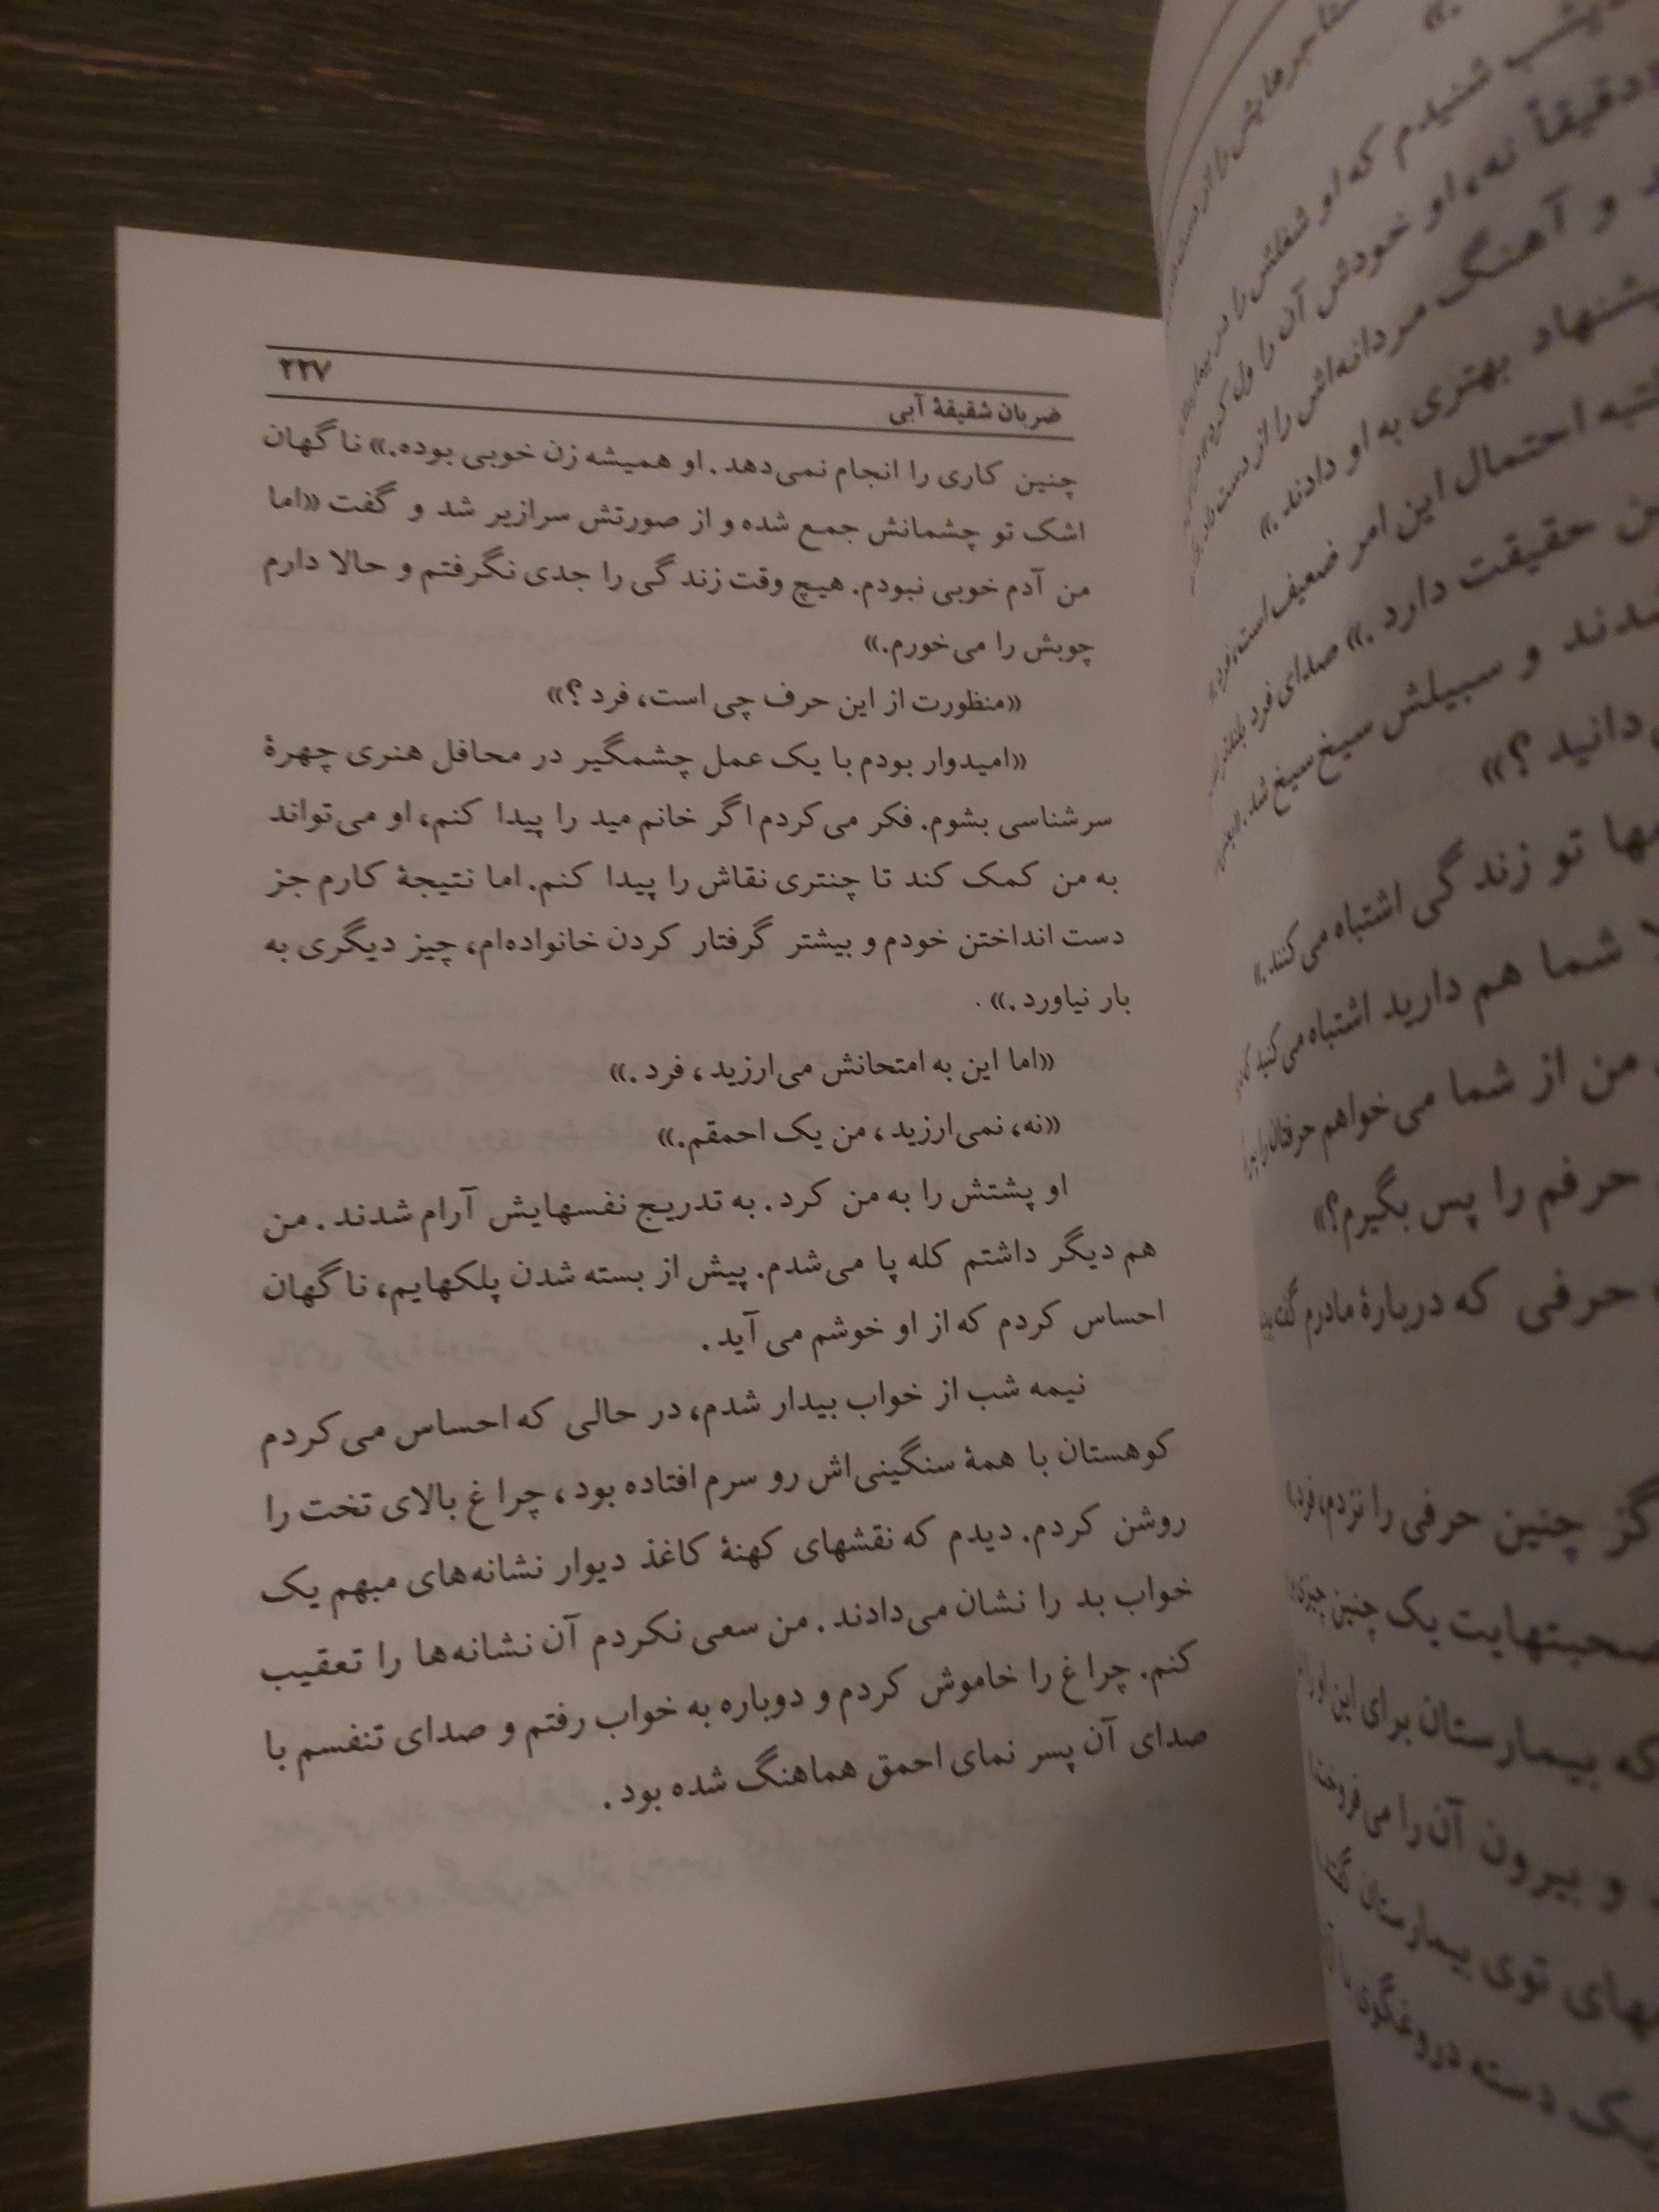 ۲۲۷
ضربان شقیقهٔ آبی
چنین کاری را انجام نمی‌دهد. او همیشه زن خوبی بوده.» ناگهان
اشک تو چشمانش جمع شده و از صورتش سرازیر شد و گفت «اما
من آدم خوبی نبودم. هیچ وقت زندگی را جدی نگرفتم و حالا دارم
چوبش را می‌خورم.»
«منظورت از این حرف چی است، فرد؟»
«امیدوار بودم با یک عمل چشمگیر در محافل هنری چهرهٔ
سرشناسی بشوم. فکر می‌کردم اگر خانم مید را پیدا کنم، او می‌تواند
به من کمک کند تا چنتری نقاش را پیدا کنم. اما نتیجهٔ کارم جز
دست انداختن خودم و بیشتر گرفتار کردن خانواده‌ام، چیز دیگری به
بار نیاورد.»
«اما این به امتحانش می‌ارزید، فرد.»
«نه، نمی‌ارزید، من یک احمقم.»
او پشتش را به من کرد. به تدریج نفسهایش آرام شدند. من
هم دیگر داشتم کله پا می‌شدم. پیش از بسته شدن پلکهایم، ناگهان
احساس کردم که از او خوشم می‌آید.
نیمه شب از خواب بیدار شدم، در حالی که احساس می‌کردم
کوهستان با همهٔ سنگینی‌اش رو سرم افتاده بود، چراغ بالای تخت را
روشن کردم. دیدم که نقشهای کهنهٔ کاغذ دیوار نشانه‌های مبهم یک
خواب بد را نشان می‌دادند. من سعی نکردم آن نشانه‌ها را تعقیب
کنم. چراغ را خاموش کردم و دوباره به خواب رفتم و صدای تنفسم با
صدای آن پسر نمای احمق هماهنگ شده بود.
شنیدم که او شغلش را در
دقیقاً نه، او خودش آن را ول کرد
و آهنگ مردانه‌اش را از دست داد
بهتری به او دادند.»
احتمال این امر ضعیف است، فرد.
حقیقت دارد.» صدای فرد
و سبیلش سیخ سیخ شد.
دانید؟»
تو زندگی اشتباه می‌کنند.»
شما هم دارید اشتباه می‌کنید
من از شما می‌خواهم حرفتان را
حرفم را پس بگیرم؟»
حرفی که دربارهٔ مادرم
چنین حرفی را نزدم، فرد.
صحبتهایت یک چنین چیزی
که بیمارستان برای این
و بیرون آن را می‌فروختند
توی بیمارستان
یک دسته دروغگوی